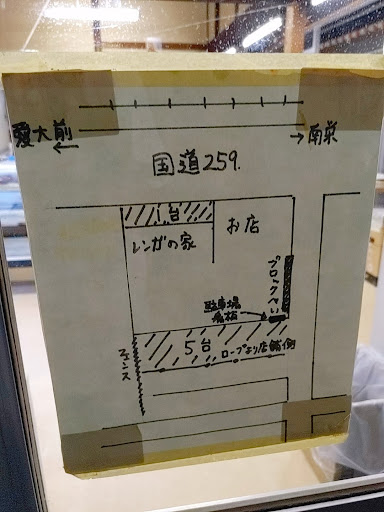 愛大前
← → 南栄
国道259.
1台
お店
レンガの家
ブロックべい
駐車場
看板
5台
ロープより店舗側
フェンス